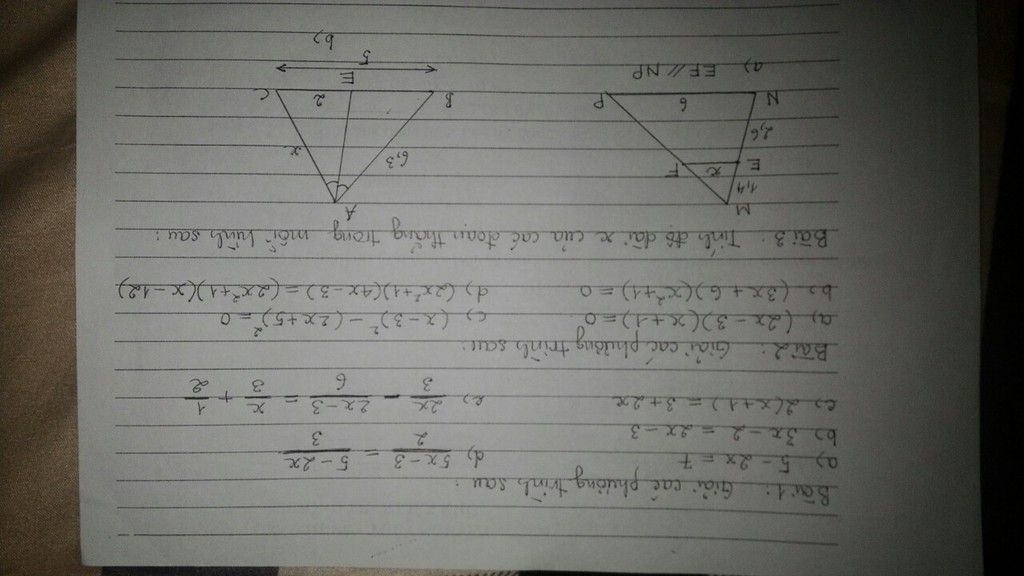 Bài 1: Giải các phương trình sau:
a) 5 - 2x = 7
d) 5x-3/2 = 5-2x/3
b) 3x - 2 = 2x - 3
c) 2(x+1) = 3 + 2x
e) 2x/3 - 2x-3/6 = x/3 + 1/2
Bài 2: Giải các phương trình sau:
a) (2x - 3)(x+1) = 0
c) (x-3)² - (2x+5)² = 0
b) (3x + 6)(x²+1) = 0
d) (2x²+1)(4x-3) = (2x²+1)(x-12)
Bài 3: Tính độ dài x của các đoạn thẳng trong mỗi hình sau:
M
A
1,4
E
x
F
6,3
x
2,6
N
6
P
B
E
2
C
5
a) EF // NP
b)